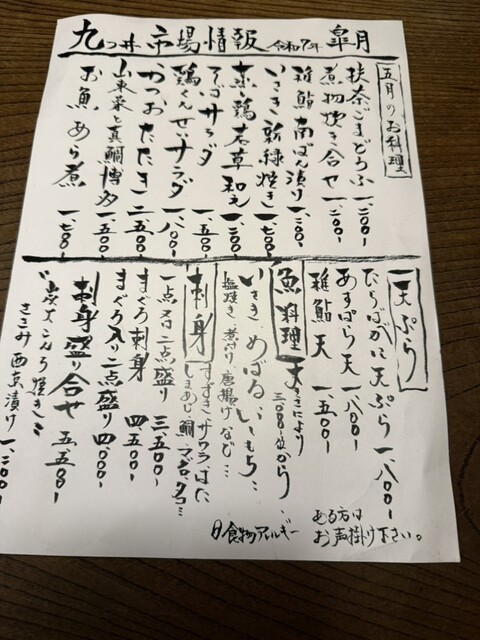 九つ井 市場情報 令和7年 皐月
五月のお料理
抹茶ごまどうふ 一、二〇〇-
煮物炊き合せ 一、二〇〇-
稚鮎 南ばん漬り 一、二〇〇-
いさき 新緑焼き 一、七〇〇-
蒸し鶏 若草和え 一、二〇〇-
そばサラダ 一、五〇〇-
鶏くんせいサラダ 一、八〇〇-
かつおたたき 二、五〇〇-
山東菜と真鯛博多 一、五〇〇-
お魚あら煮 一、七〇〇-
天ぷら
たらばがに天ぷら 一、八〇〇-
あすぱら天 一、八〇〇-
稚鮎天 一、五〇〇-
魚料理 大きさにより 三、〇〇〇位から
いさき、めばる、いいもち、
塩焼き、煮付け、唐揚げなど…
刺身 すずき、サワラ、はた
しまあじ、鯛、マグロ、名…
一点又は二点盛り 三、五〇〇-
まぐろ刺身 四、五〇〇-
まぐろ入り二点盛り 四、〇〇〇-
刺身盛り合せ 五、五〇〇-
〝炭火こんろ焼き〟
ささみ西京漬け 一、二〇〇-
食物アレルギー
ある方は
お声掛け下さい。